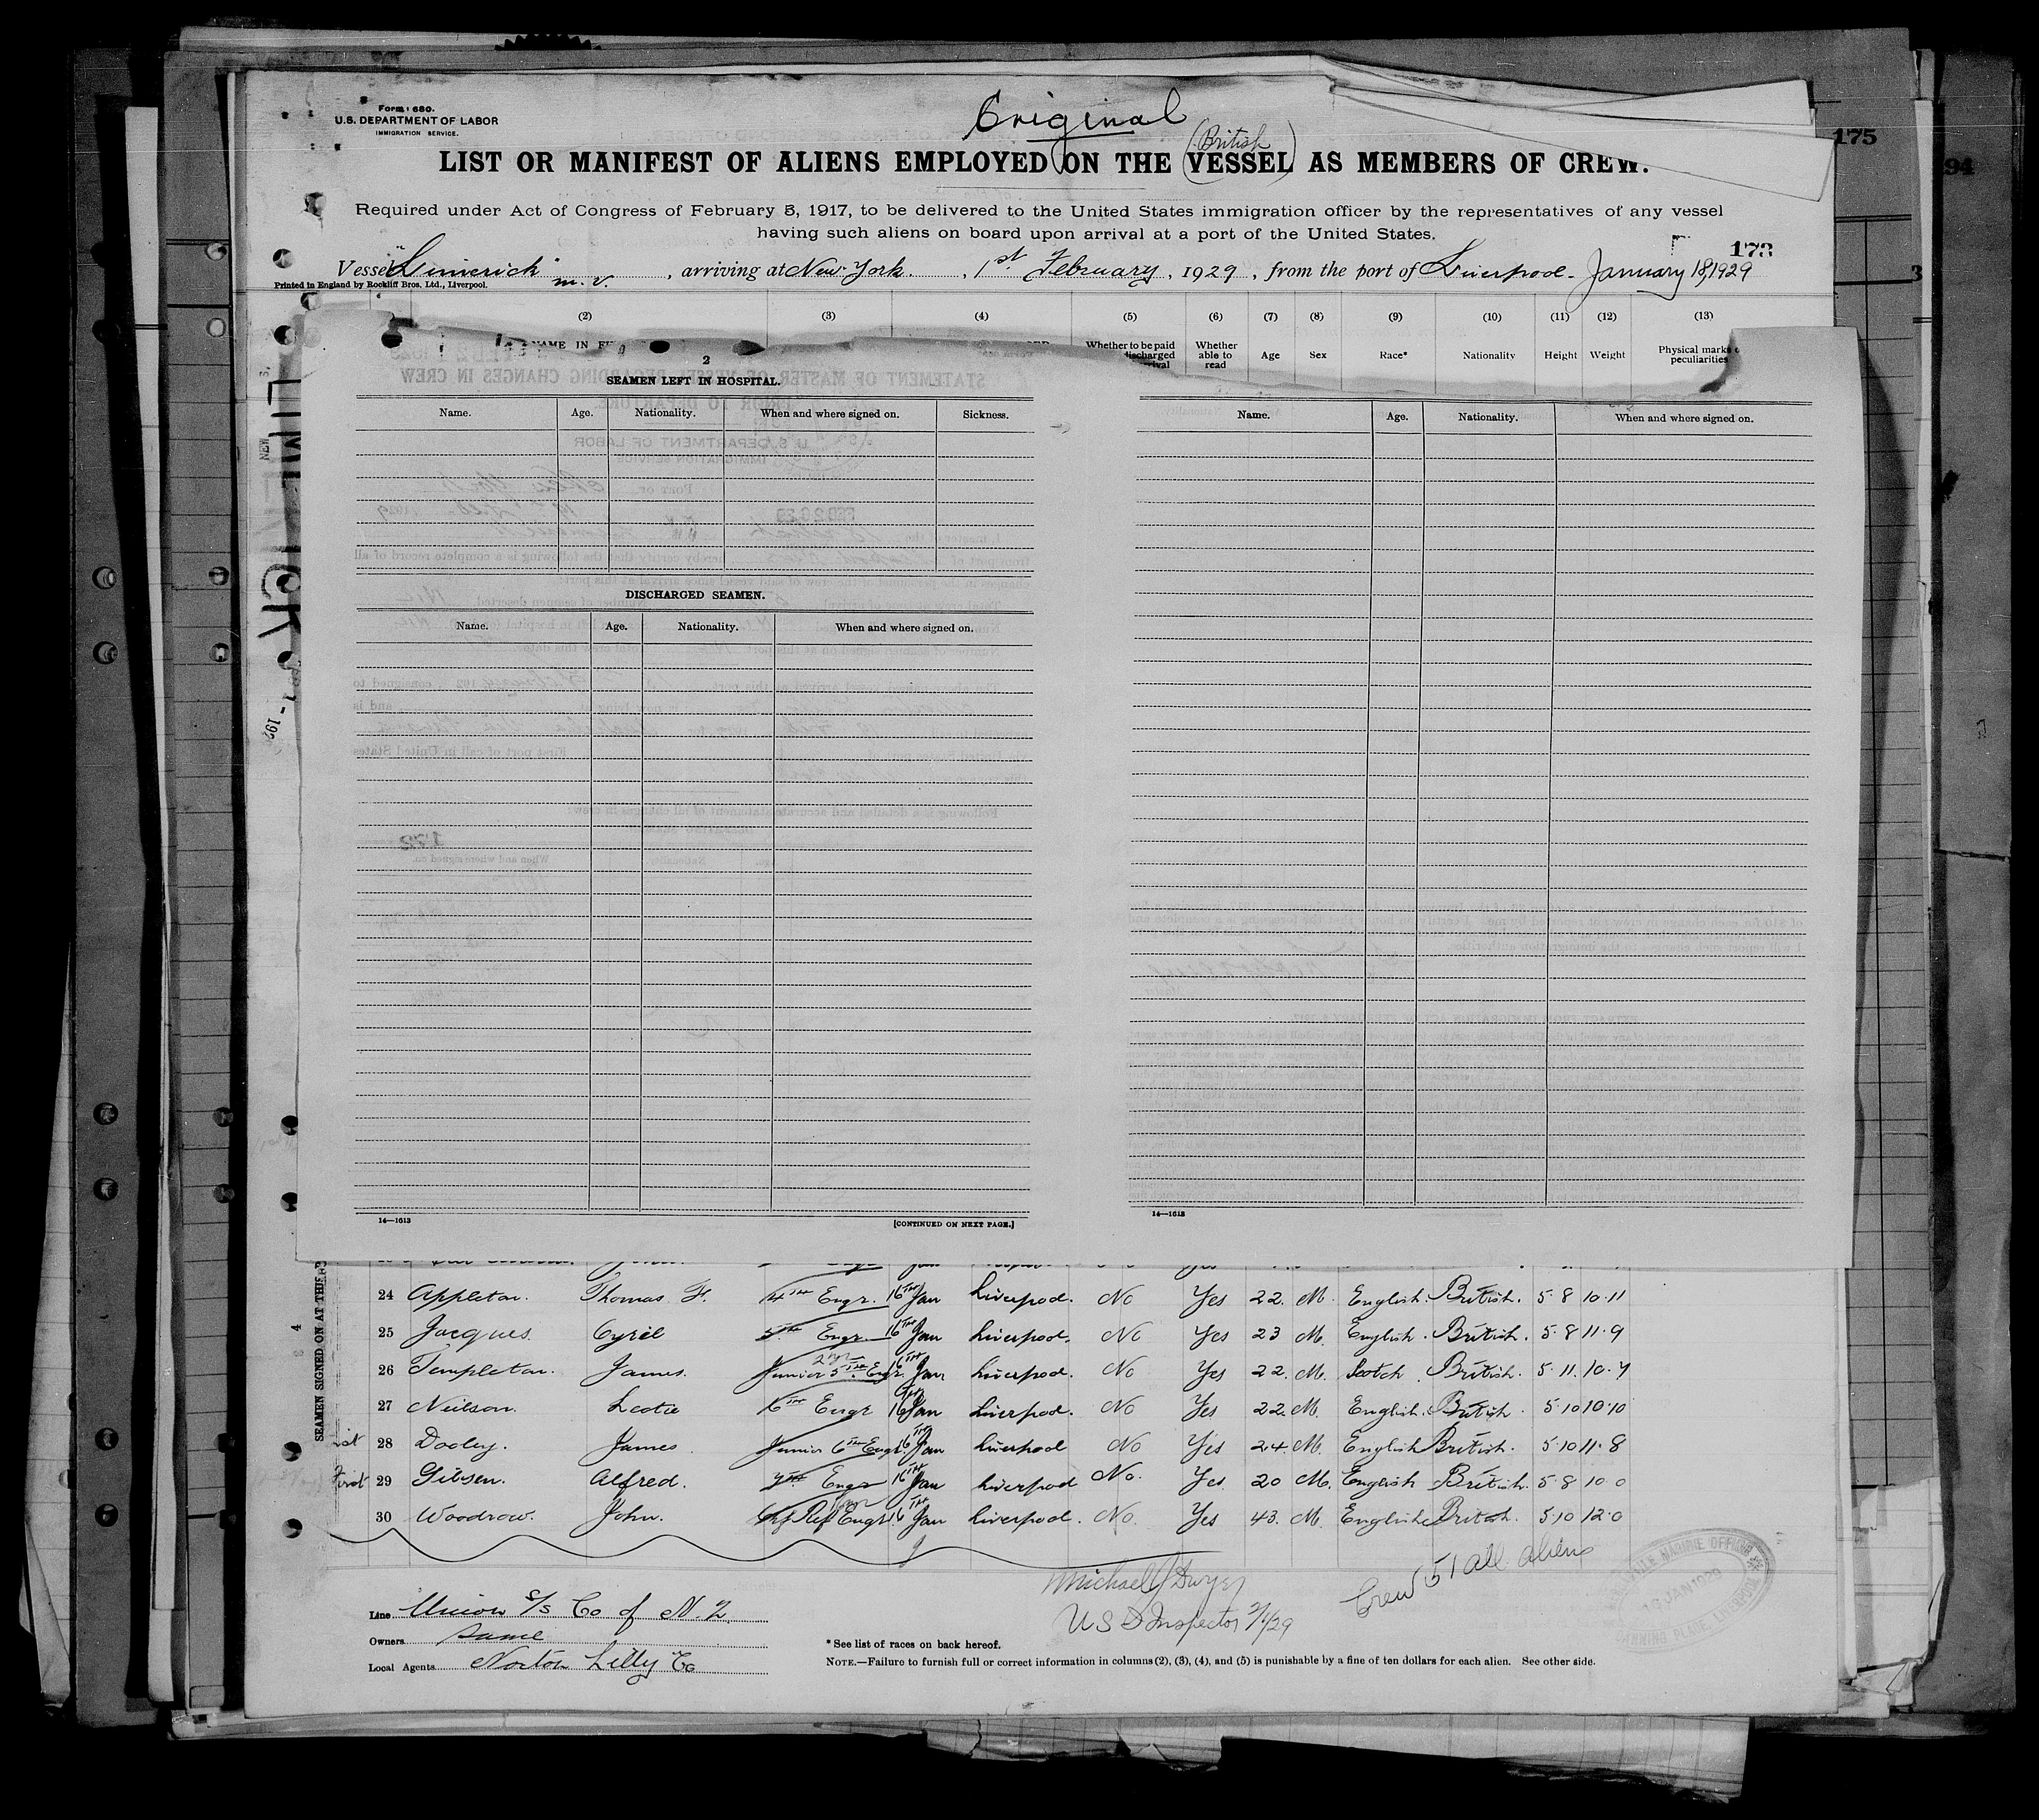 Form 680.
U.S. DEPARTMENT OF LABOR
IMMIGRATION SERVICE.
Original
(British)
LIST OR MANIFEST OF ALIENS EMPLOYED ON THE VESSEL AS MEMBERS OF CREW.
175
94
Required under Act of Congress of February 5, 1917, to be delivered to the United States immigration officer by the representatives of any vessel
having such aliens on board upon arrival at a port of the United States.
173
Vessel "Limerick" m.v., arriving at New York, 1st February, 1929, from the port of Liverpool - January 18, 1929
Printed in England by Rockliff Bros. Ltd., Liverpool.
3
(2) (3) (4) (5) (6) (7) (8) (9) (10) (11) (12) (13)
NAME IN Whether to be paid Whether able to read Age Sex Race* Nationality Height Weight Physical marks peculiarities
LIMERICK
2
SEAMEN LEFT IN HOSPITAL.
Name. Age. Nationality. When and where signed on. Sickness.
Name. Age. Nationality. When and where signed on.
DISCHARGED SEAMEN.
Name. Age. Nationality. When and where signed on.
14—1613 [CONTINUED ON NEXT PAGE.]
14—1613
SEAMEN SIGNED ON AT THE
4
24 Appleton. Thomas H. 4th Engr. 16th Jan Liverpool. No Yes 22. M. English. British. 5.8 10.11
25 Jacques. Cyril 5th Engr. 16th Jan Liverpool. No Yes 23 M. English. British. 5.8 11.9
26 Templeton. James. Junior 5th Engr. 16th Jan Liverpool. No Yes 22. M. Scotch. British. 5.11. 10.7
27 Neilson. Leslie 6th Engr 16th Jan Liverpool. No Yes 22. M. English. British. 5.10 10.10
28 Dooley. James. Junior 6th Engr. 16th Jan Liverpool No Yes 24. M. English British. 5.10 11.8
First 29 Gibson. Alfred. 7th Engr 16th Jan Liverpool No. Yes 20 M. English British. 5.8 10.0
30 Woodrow. John. Chf Ref Engr. 16th Jan Liverpool. No. Yes 43. M. English British. 5.10 12.0
Michael J Dwyer
U S Inspector 2/1/29
Crew 51 all aliens
Line Union S/S Co of N.Z.
Owners same
Local Agents Norton Lilly Co
* See list of races on back hereof.
NOTE.—Failure to furnish full or correct information in columns (2), (3), (4), and (5) is punishable by a fine of ten dollars for each alien. See other side.